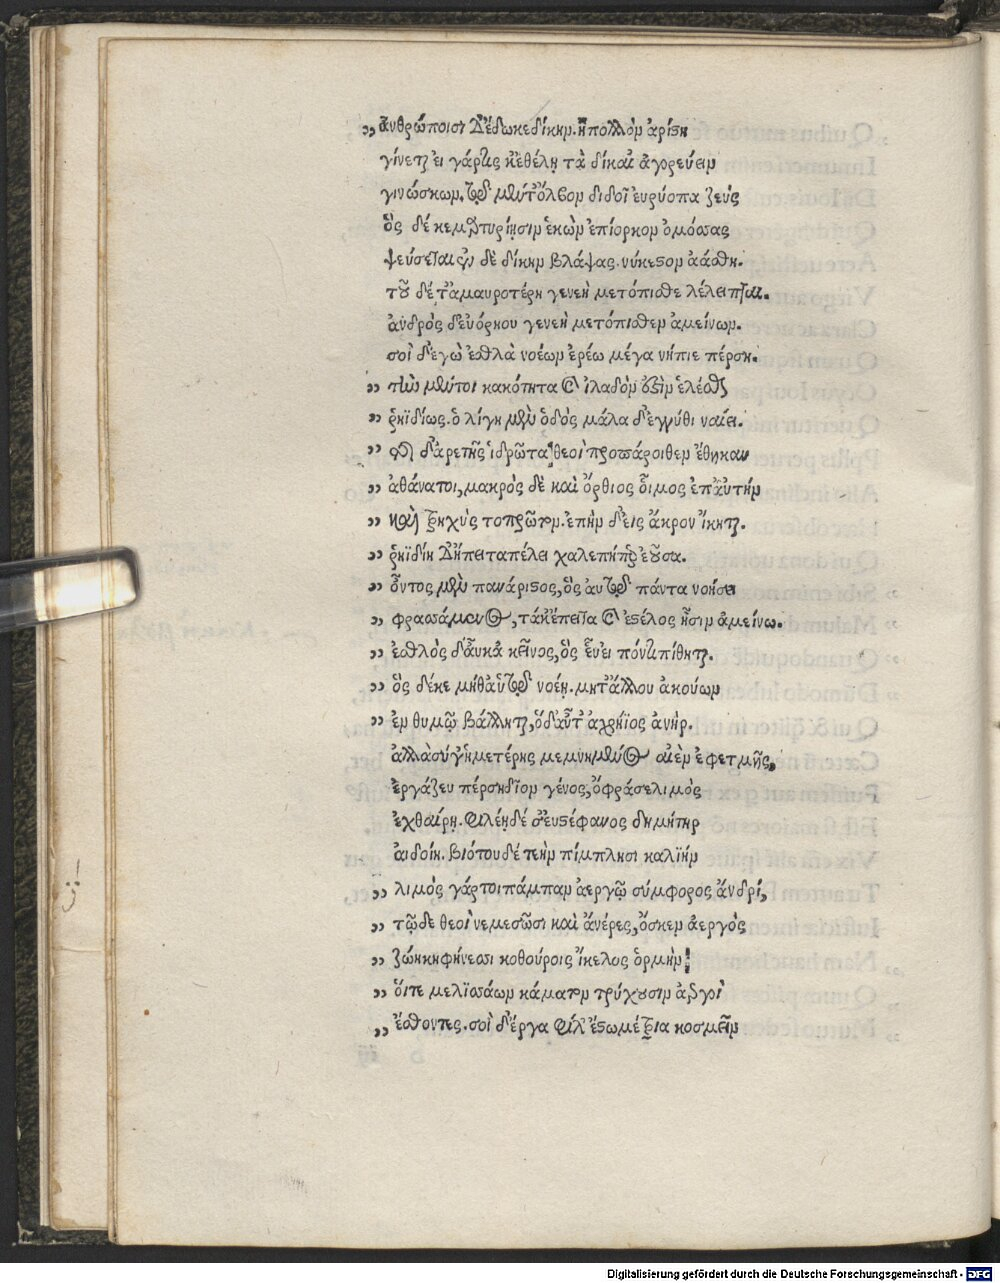 „ ἀνθρώποισι δ' ἔδωκε δίκην. ἣ πολλὸν ἀρίστη
γίνεται εἰ γάρ τις κ' ἐθέλῃ τὰ δίκαι' ἀγορεύειν
γινώσκων. τῷ μέν τ' ὄλβον διδοῖ εὐρύοπα ζεύς
ὃς δέ κε μαρτυρίῃσιν ἑκὼν ἐπίορκον ὀμόσσας
ψεύσεται ἐν δὲ δίκην βλάψας. νήκεστον ἀάσθη.
τοῦ δέ τ' ἀμαυροτέρη γενεὴ μετόπισθε λέλειπται.
ἀνδρὸς δ' εὐόρκου γενεὴ μετόπισθεν ἀμείνων.
σοὶ δ' ἐγὼ ἐσθλὰ νοέων ἐρέω μέγα νήπιε πέρση.
„ τὴν μέν τοι κακότητα καὶ ἰλαδὸν ἔστιν ἑλέσθαι
„ ῥηϊδίως. ὀλίγη μὲν ὁδὸς μάλα δ' ἐγγύθι ναίει.
„ τῆς δ' ἀρετῆς ἱδρῶτα θεοὶ προπάροιθεν ἔθηκαν
„ ἀθάνατοι, μακρὸς δὲ καὶ ὄρθιος οἶμος ἐπ' αὐτὴν
„ καὶ τρηχὺς τοπρῶτον. ἐπὴν δ' εἰς ἄκρον ἵκηται.
„ ῥηϊδίη δὴ 'πειτα πέλει χαλεπή περ ἐοῦσα.
„ οὗτος μὲν πανάριστος, ὃς αὐτῷ πάντα νοήσει
„ φρασσάμενος, τά κ' ἔπειτα καὶ ἐς τέλος ᾖσιν ἀμείνω.
„ ἐσθλὸς δ' αὖ κἀκεῖνος, ὃς εὖ εἰπόντι πίθηται.
„ ὃς δέ κε μήθ' αὑτῷ νοέῃ. μήτ' ἄλλου ἀκούων
„ ἐν θυμῷ βάλληται, ὅδ' αὖτ' ἀχρήϊος ἀνήρ.
ἀλλὰ σύ γ' ἡμετέρης μεμνημένος αἰὲν ἐφετμῆς,
ἐργάζευ πέρση δῖον γένος, ὄφρα σε λιμὸς
ἐχθαίρῃ. φιλέῃ δέ σ' ἐϋστέφανος δημήτηρ
αἰδοίη. βιότου δὲ τεὴν πίμπλησι καλιήν
„ λιμὸς γάρ τοι πάμπαν ἀεργῷ σύμφορος ἀνδρί,
„ τῷ δὲ θεοὶ νεμεσῶσι καὶ ἀνέρες, ὅς κεν ἀεργὸς
„ ζώῃ κηφήνεσσι κοθούροις ἴκελος ὁρμήν
„ οἵτε μελισσάων κάματον τρύχουσιν ἀεργοὶ
„ ἔσθοντες. σοὶ δ' ἔργα φίλ' ἔστω μέτρια κοσμεῖν
Digitalisierung gefördert durch die Deutsche Forschungsgemeinschaft - DFG